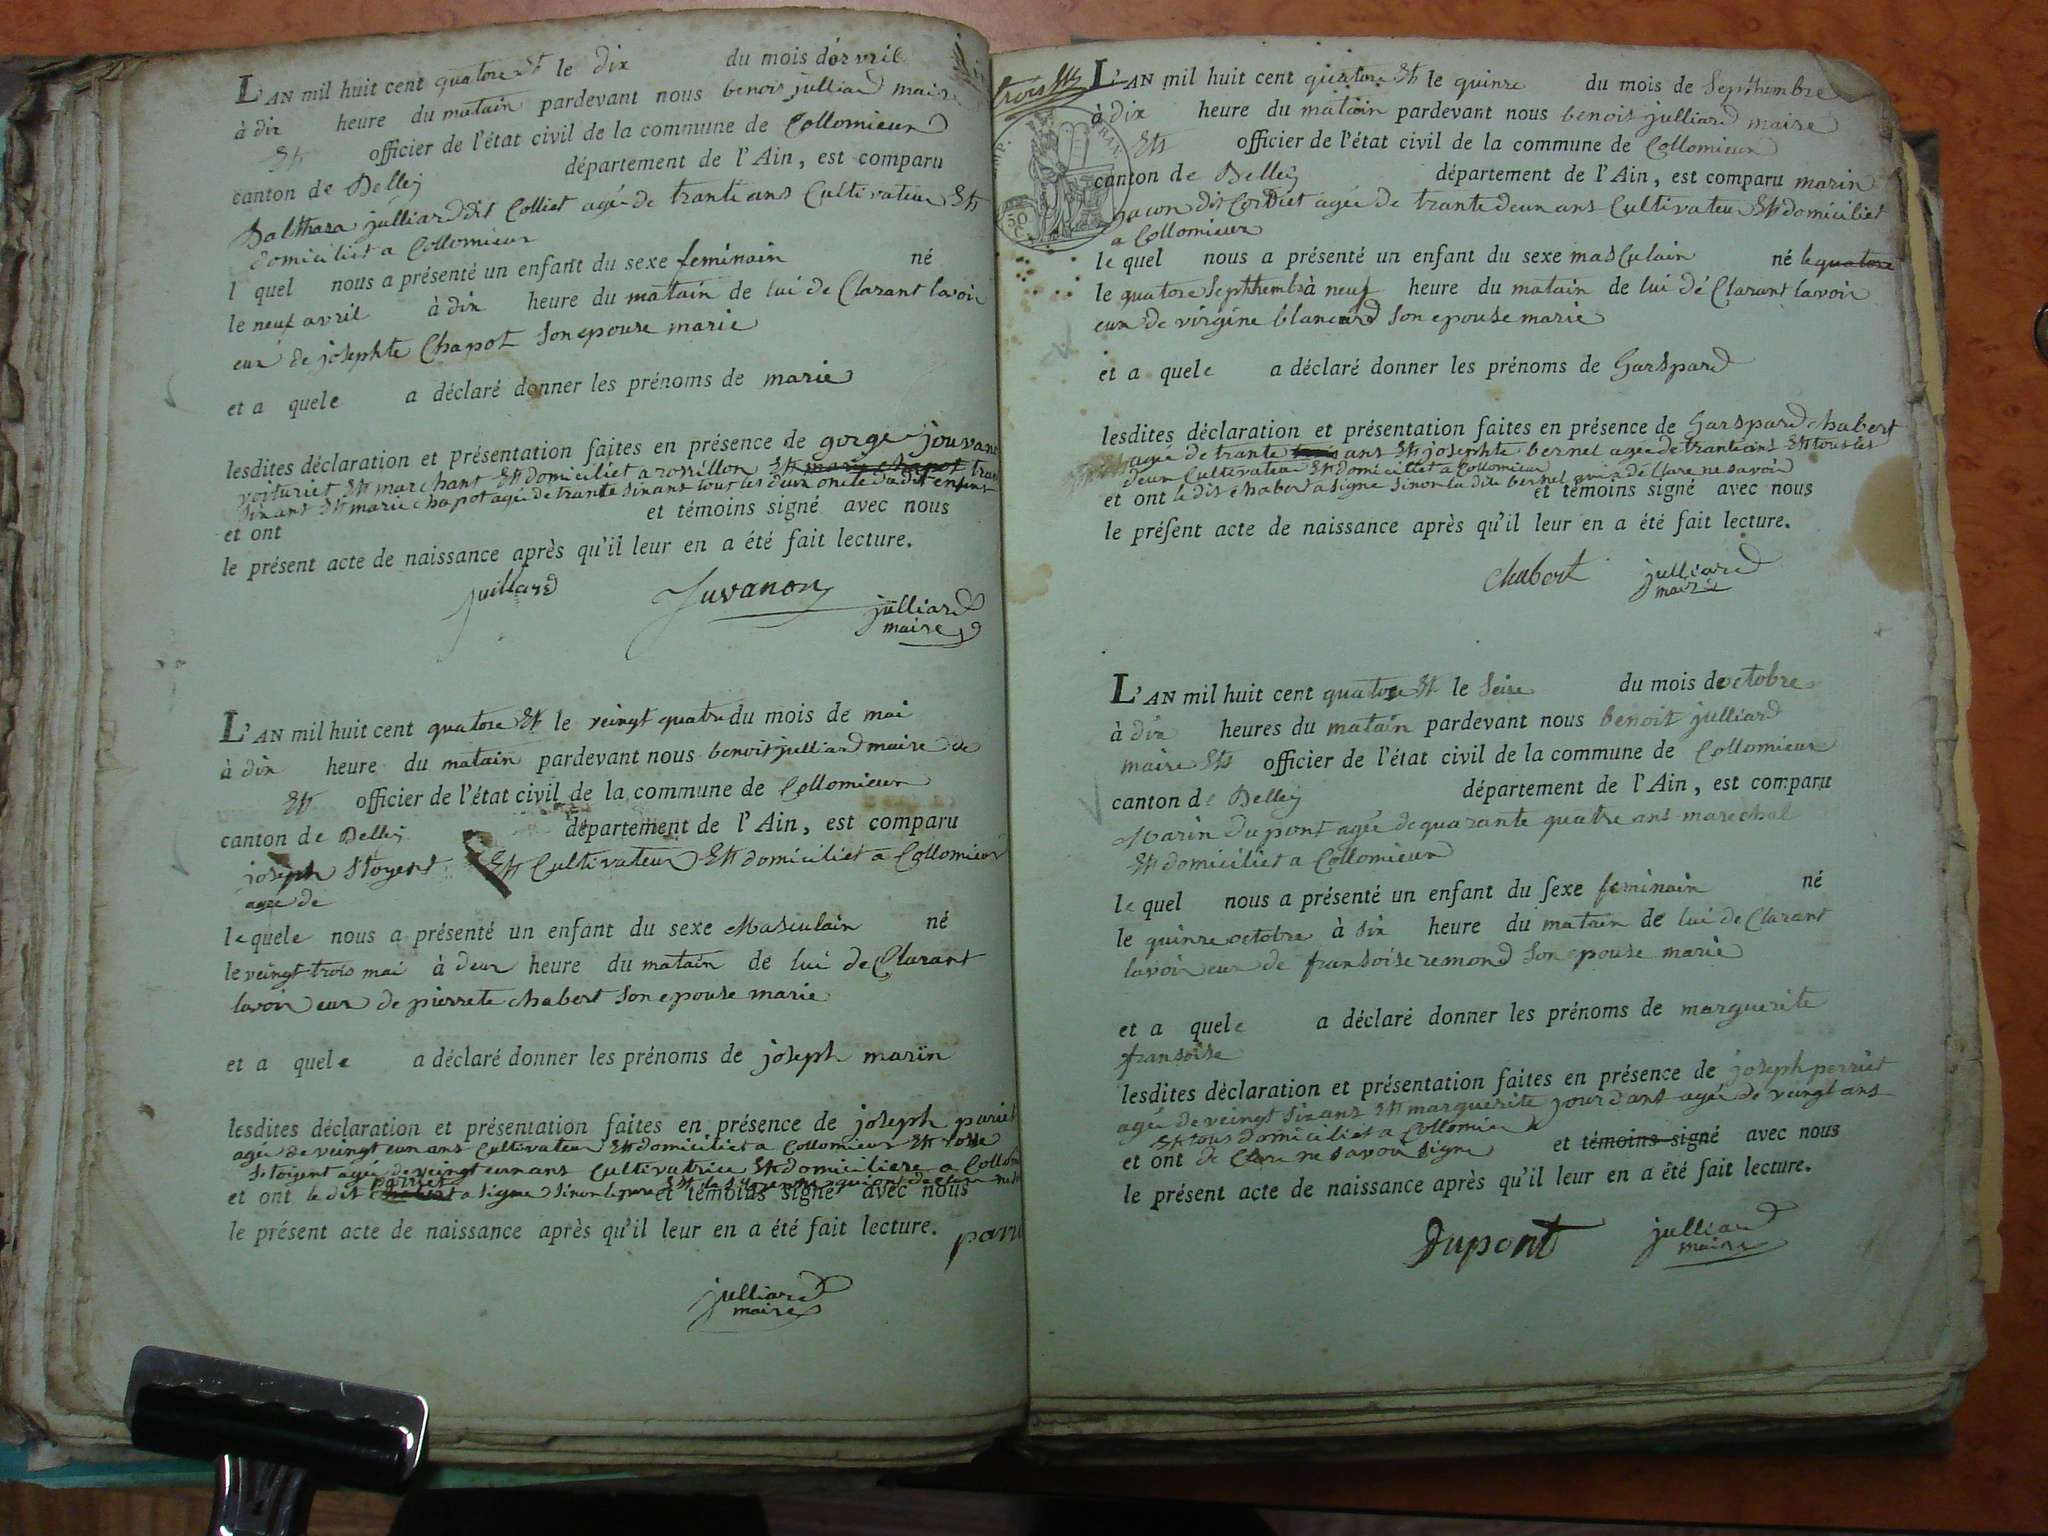 L'AN mil huit cent quatorze Et le dix du mois d'avril
à dix heure du matain pardevant nous benoit julliard maire
Et officier de l'état civil de la commune de Collomieux
canton de Belley département de l'Ain, est comparu
Balthaza julliard dit Colliet agée de trante ans Cultivateur Et
domiciliet a Collomieux
l quel nous a présenté un enfant du sexe feminain né
le neuf avril à dix heure du matain de lui de Clarant lavoir
eux de josephte Chapot Son epouse marie
et a quele a déclaré donner les prénoms de marie
lesdites déclaration et présentation faites en présence de gorge jouvanon
voituriet Et marchant Et domiciliet a rossillon Et marie chapot
Six ans Et marie chapot agée de trante Six ans tous les deux oncle du dit enfant
et ont et témoins signé avec nous
le présent acte de naissance après qu'il leur en a été fait lecture.
juillard Juvanon julliard
maire
L'AN mil huit cent quatorze Et le veingt quatre du mois de mai
à dix heure du matain pardevant nous benoit julliard maire de
Et officier de l'état civil de la commune de Collomieux
canton de Belley département de l'Ain, est comparu
joseph Stoyent Et Cultivateur Et domiciliet a Collomieux
agée de
le quele nous a présenté un enfant du sexe Masculain né
le veingt trois mai à deux heure du matain de lui de Clarant
lavoir eux de pierrete chabert Son epouse marie
et a quele a déclaré donner les prénoms de joseph marïn
lesdites déclaration et présentation faites en présence de joseph pariet
agée de veingt eun ans Cultivateur Et domiciliet a Collomieux Et rosse
Stoyent agée de veingt eun ans Cultivatrice Et domiciliere a Collom
pariet
et ont le dit chabert a Signe Sinon le pere Et la et témoins signé avec nous
le présent acte de naissance après qu'il leur en a été fait lecture.
julliard
maire
trois Et
L'AN mil huit cent quatorze Et le quinze du mois de Septhembre
à dix heure du matain pardevant nous benoit julliard maire
Et officier de l'état civil de la commune de Collomieux
canton de Belley département de l'Ain, est comparu marin
gacon dit Cordiet agée de trante deux ans Cultivateur Et domiciliet
a Collomieux
le quel nous a présenté un enfant du sexe masculain né le quatorze
le quatorze Septhembre à neuf heure du matain de lui dé Clarant lavoir
eux de virgine blancard Son epouse marie
et a quele a déclaré donner les prénoms de Garspard
lesdites déclaration et présentation faites en présence de Garspard chabert
agée de trante trois ans Et josephte bernel agée de trante ans Et tous les
deux Cultivateur Et domiciliet a Collomieux
et ont le dit chabert a Signe Sinon la dite bernel qui a déClare ne Savoir et témoins signé avec nous
le présent acte de naissance après qu'il leur en a été fait lecture.
chabert julliard
maire
L'AN mil huit cent quatorze Et le Seize du mois de octobre
à dix heures du matain pardevant nous benoit julliard
maire Et officier de l'état civil de la commune de Collomieux
canton de Belley département de l'Ain, est comparu
Marin dupont agée de quarante quatre ans marechal
Et domiciliet a Collomieux
le quel nous a présenté un enfant du sexe feminain né
le quinze octobre à Six heure du matain de lui de Clarant
lavoir eux de fransoise remond Son epouse marie
et a quele a déclaré donner les prénoms de marguerite
fransoise
lesdites déclaration et présentation faites en présence de joseph perriet
agée de veingt Six ans Et marguerite jourdans agée de veingt ans
Et tous domiciliet a Collomieux
et ont de Clare ne Savoir Signe et témoins signé avec nous
le présent acte de naissance après qu'il leur en a été fait lecture.
Dupont julliard
maire